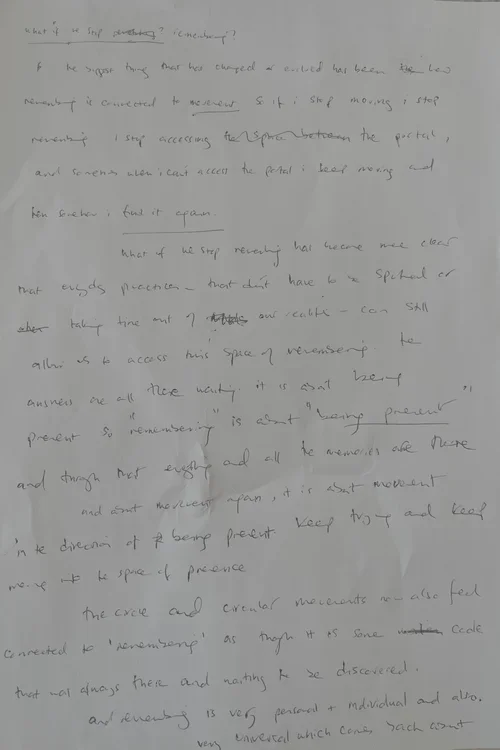 what if we stop remembering?
the biggest thing that has changed or evolved has been how
remembering is connected to movement so if i stop moving i stop
remembering i stop accessing the space between the portal,
and sometimes when i can't access the portal i keep moving and
then somehow i find it again.
what if we stop remembering has become more clear
that everyday practices - that don't have to be spiritual or
taking time out of our realities - can still
allow us to access this space of remembering. the
answers are all there waiting. it is about being
present so "remembering" is about "being present"
and through that everything and all the memories are there
and about movement again, it is about movement
in the direction of being present. keep trying and keep
moving into the space of presence
the circle and circular movements now also feel
connected to 'remembering' as though it is some code
that was always there and waiting to be discovered.
and remembering is very personal + individual and also,
very universal which comes back about